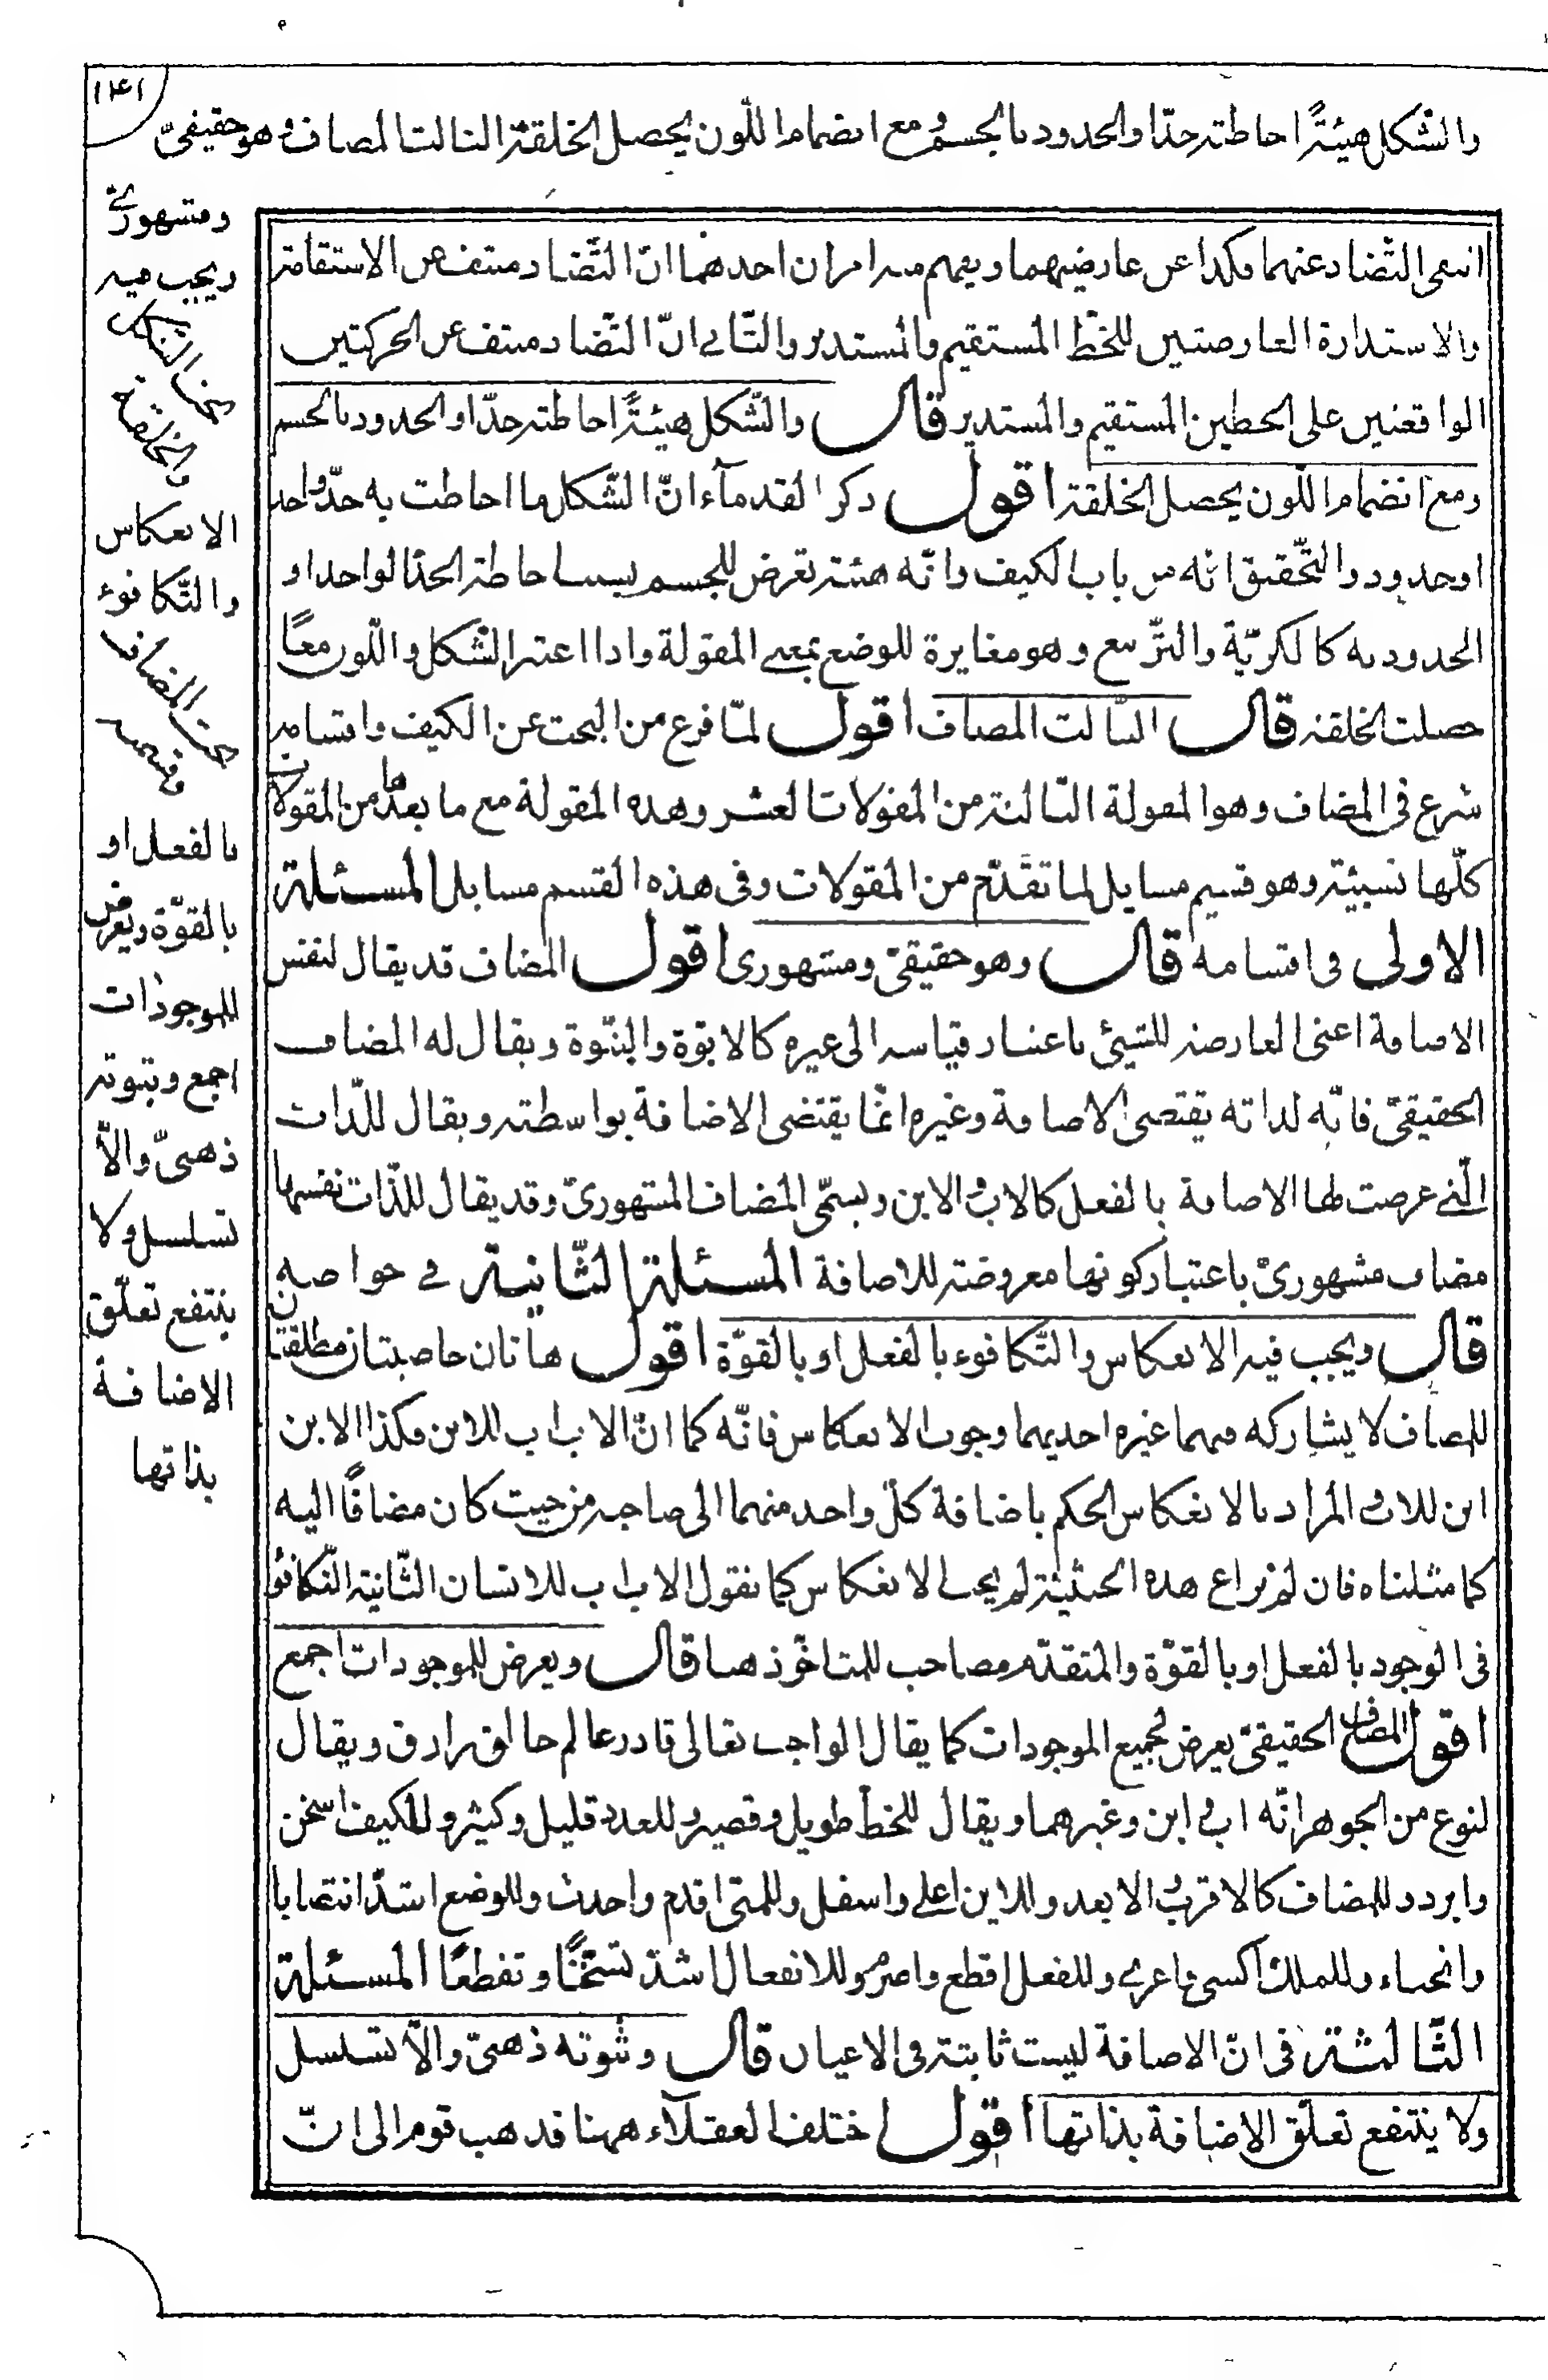 ١٤١
والشكل هيئةً احاطته حدّا والحدود بالجسم ومع انضمام اللّون يحصل الخلقة الثالث المضاف وهو حقيقيّ
ومشهوريّ
ويجب فيه
بحث الشكل
والخلقة
الانعكاس
والتّكافوء
بحث المضاف
وقسميه
بالفعل او
بالقوّة ويعرض
للموجودات
اجمع وثبوته
ذهنىّ والّا
تسلسل ولا
ينتفع تعلّق
الاضافة
بذاتها
انتفى التّضاد عنهما فكذا عن عارضيهما ويفهم منه امران احدهما انّ التّضاد منتف عن الاستقامة
والاستدارة العارضتين للخطّ المستقيم والمستدير والثّانى انّ التّضاد منتف عن الحركتين
الواقعتين على الخطين المستقيم والمستدير قال والشّكل هيئةً احاطته حدّا والحدود بالجسم
ومع انضمام اللّون يحصل الخلقة اقول ذكر القدمآء انّ الشّكل ما احاطت به حدّ واحد
او حدود والتّحقيق انّه من باب الكيف وانّه هيئة تعرض للجسم بسبب احاطة الحدّ الواحد او
الحدود به كالكريّة والتّربيع وهو مغايرة للوضع بمعنى المقولة واذا اعتبر الشّكل واللّون معًا
حصلت الخلقة قال الثالث المضاف اقول لمّا فرغ من البحث عن الكيف واقسامه
شرع فى المضاف وهو المقولة الثّالثة من المقولات العشر وهذه المقولة مع ما بعدها من المقولات
كلّها نسبيّة وهو قسيم مسايل لما تقدّم من المقولات وفى هذه القسم مسايل المسئلة
الاولى فى اقسامه قال وهو حقيقىّ ومشهورى اقول المضاف قد يقال لنفس
الاضافة اعنى العارضة للشيئ باعتبار قياسه الى غيره كالابوّة والبنّوة ويقال له المضاف
الحقيقىّ فانّه لذاته يقتضى الاضافة وغيره انّما يقتضى الاضافة بواسطته ويقال للذّات
الّتى عرضت لها الاضافة بالفعل كالاب والابن ويسمّى المضاف المشهورىّ وقد يقال للذّات نفسها
مضاف مشهورىّ باعتبار كونها معروضة للاضافة المسئلة الثّانية فى خواصه
قال ويجب فيه الانعكاس والتّكافوء بالفعل او بالقوّة اقول هاتان خاصيتان مطلقتان
للمضاف لا يشاركه فيهما غيره احديهما وجوب الانعكاس فانّه كما انّ الاب اب للابن فكذا الابن
ابن للاب والمراد بالانعكاس الحكم باضافة كلّ واحد منهما الى صاحبه من حيث كان مضافًا اليه
كما مثلناه فان لم يراع هذه الحيثيّة لم يجب الانعكاس كما نقول الاب اب للانسان الثّانية التّكافؤ
فى الوجود بالفعل او بالقوّة والمتقدّم مصاحب للمتاخّر ذهنا قال ويعرض للموجودات اجمع
اقول المضاف الحقيقىّ يعرض لجميع الموجودات كما يقال الواجب تعالى قادر عالم خالق رازق ويقال
لنوع من الجوهر انّه اب وابن وغيرهما ويقال للخطّ طويل وقصير وللعدد قليل وكثير وللكيف اسخن
وابرد وللمضاف كالاقرب والابعد وللاين اعلى واسفل وللمتى اقدم واحدث وللوضع اشدّ انتصابا
وانحناء وللملك اكسى واعرى وللفعل اقطع واصرم وللانفعال اشدّ تسخّنًا وتقطعًا المسئلة
الثّالثة فى انّ الاضافة ليست ثابتة فى الاعيان قال وثبوته ذهنىّ والّا تسلسل
ولا ينتفع تعلّق الاضافة بذاتها اقول اختلف العقلاء ههنا فذهب قوم الى انّ